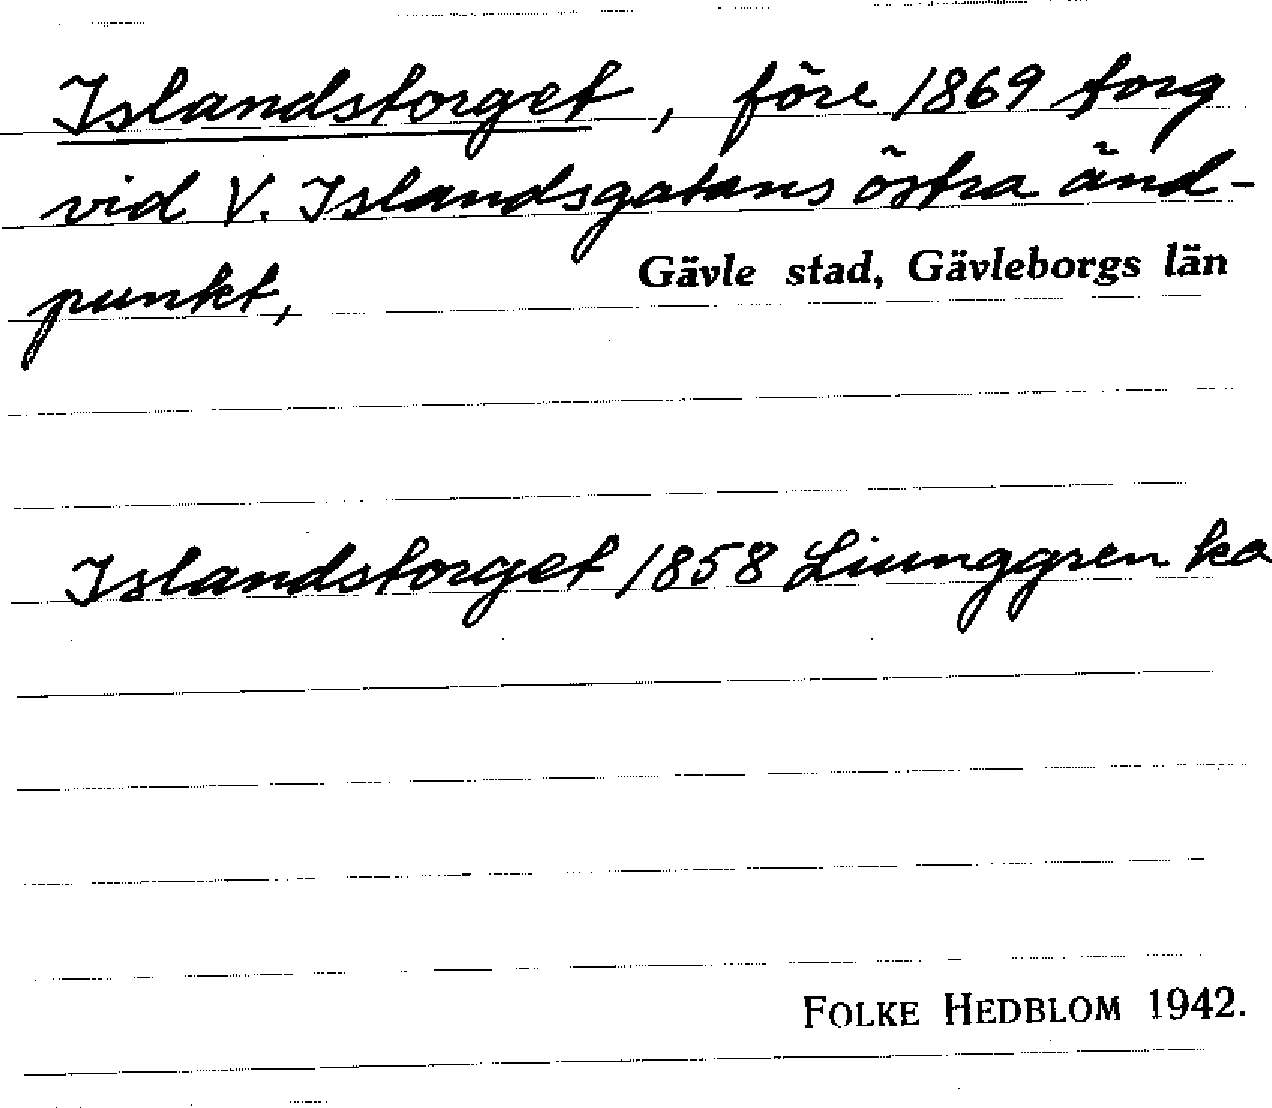 Islandstorget, före 1869 torg
vid V. Islandsgatans östra änd-
punkt, Gävle stad, Gävleborgs län
Islandstorget 1858 Liunggren ka
FOLKE HEDBLOM 1942.